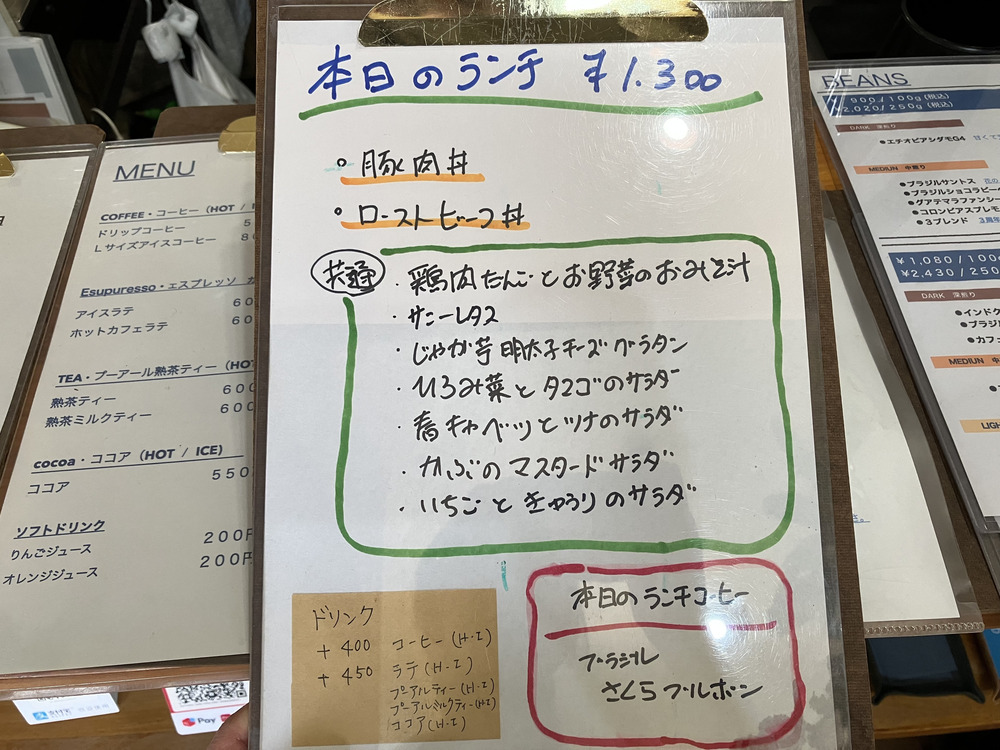 本日のランチ ¥1.300
・豚肉丼
・ローストビーフ丼
共通
・鶏肉だんごとお野菜のおみそ汁
・サニーレタス
・じゃが芋明太子チーズグラタン
・ひろみ菜とタマゴのサラダ
・春キャベツとツナのサラダ
・かぶのマスタードサラダ
・いちごときゅうりのサラダ
ドリンク
+400 コーヒー(H・I)
+450 ラテ(H・I)
プーアルティー(H・I)
プーアルミルクティー(H・I)
ココア(H・I)
本日のランチコーヒー
ブラジル
さくらブルボン
MENU
COFFEE・コーヒー (HOT /
ドリップコーヒー
Lサイズアイスコーヒー
Esupuresso・エスプレッソ
アイスラテ 60
ホットカフェラテ 60
TEA・プーアール熟茶ティー (HOT
熟茶ティー 600
熟茶ミルクティー 600
cocoa・ココア (HOT / ICE)
ココア 550
ソフトドリンク
りんごジュース 200円
オレンジジュース 200円
Pay
BEANS
900/100g(税込)
¥2,020/250g(税込)
DARK 深煎り
●エチオピアシダモG4 甘くて
MEDIUN 中煎り
●ブラジルサントス
●ブラジルショコラピー
●グアテマラファンシー
●コロンビアスプレモ
●3ブレンド 3周年
¥1,080/100g
¥2,430/250
DARK 深煎り
●インド
●ブラジ
●カフェ
MEDIUN 中
LIGH